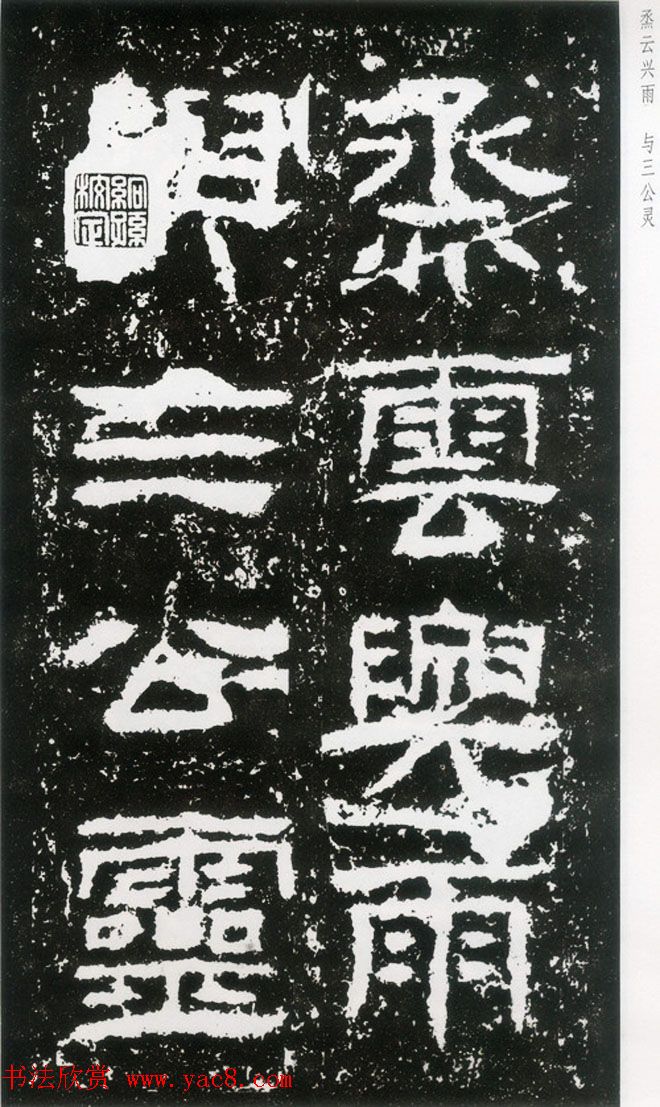 烝云兴雨 与三公灵
烝雲興雨
三公靈
书法欣赏 www.yac8.com